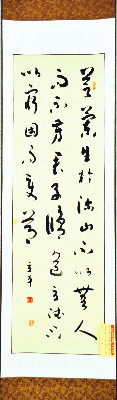 芝蘭生於深山不以無人
而不芳君子修道立德不
以窮困而變節